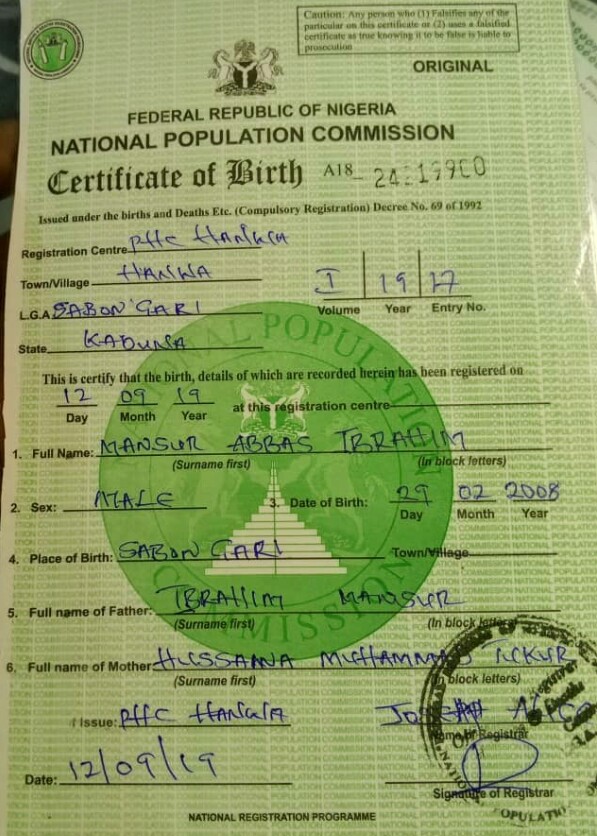 Caution: Any person who (1) Falsifies any of the
particular on this certificate or (2) uses a falsified
certificate as true knowing it to be false is liable to
prosecution
ORIGINAL
FEDERAL REPUBLIC OF NIGERIA
NATIONAL POPULATION COMMISSION
Certificate of Birth A18
Issued under the births and Deaths Etc. (Compulsory Registration) Decree No. 69 of 1992
Registration Centre PHC HANWA
Town/Village HANWA
I 19 17
L.G.A SABON GARI
Volume Year Entry No.
State KADUNA
This is certify that the birth, details of which are recorded herein has been registered on
12 09 19 at this registration centre
Day Month Year
1. Full Name: MANSUR ABBAS IBRAHIM
(Surname first) (In block letters)
2. Sex: MALE 3. Date of Birth: 29 02 2008
Day Month Year
4. Place of Birth: SABON GARI Town/Village
5. Full name of Father: IBRAHIM MANSUR
(Surname first) (In block letters)
6. Full name of Mother HUSSAINA MUHAMMAD TUKUR
(Surname first) (In block letters)
Issue: PHC HANWA
Name of Registrar
Date: 12/09/19
Signature of Registrar
NATIONAL REGISTRATION PROGRAMME